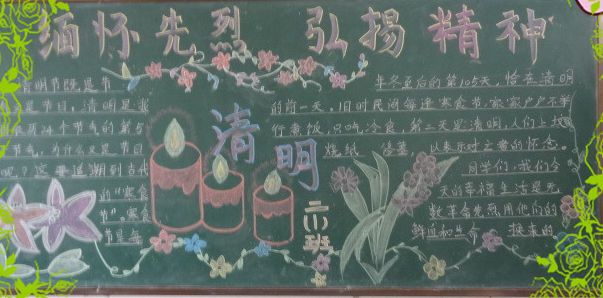 缅怀先烈 弘扬精神
清明节既是节
是节日，清明是我
24个节气的第5
节气，为什么又是节日
呢？这要追溯到古代
的“寒食
节”，寒食
节是每
清明
六(1)班
年冬至后的第105天，恰在清明
的前一天，旧时民间每逢寒食节，家家户户不举
行煮饭，只吃冷食，第二天是清明，人们上坟
烧纸 以表示对亡者的怀念。
同学们，我们今
天的幸福生活是无
数革命先烈用他们的
鲜血和生命 换来的